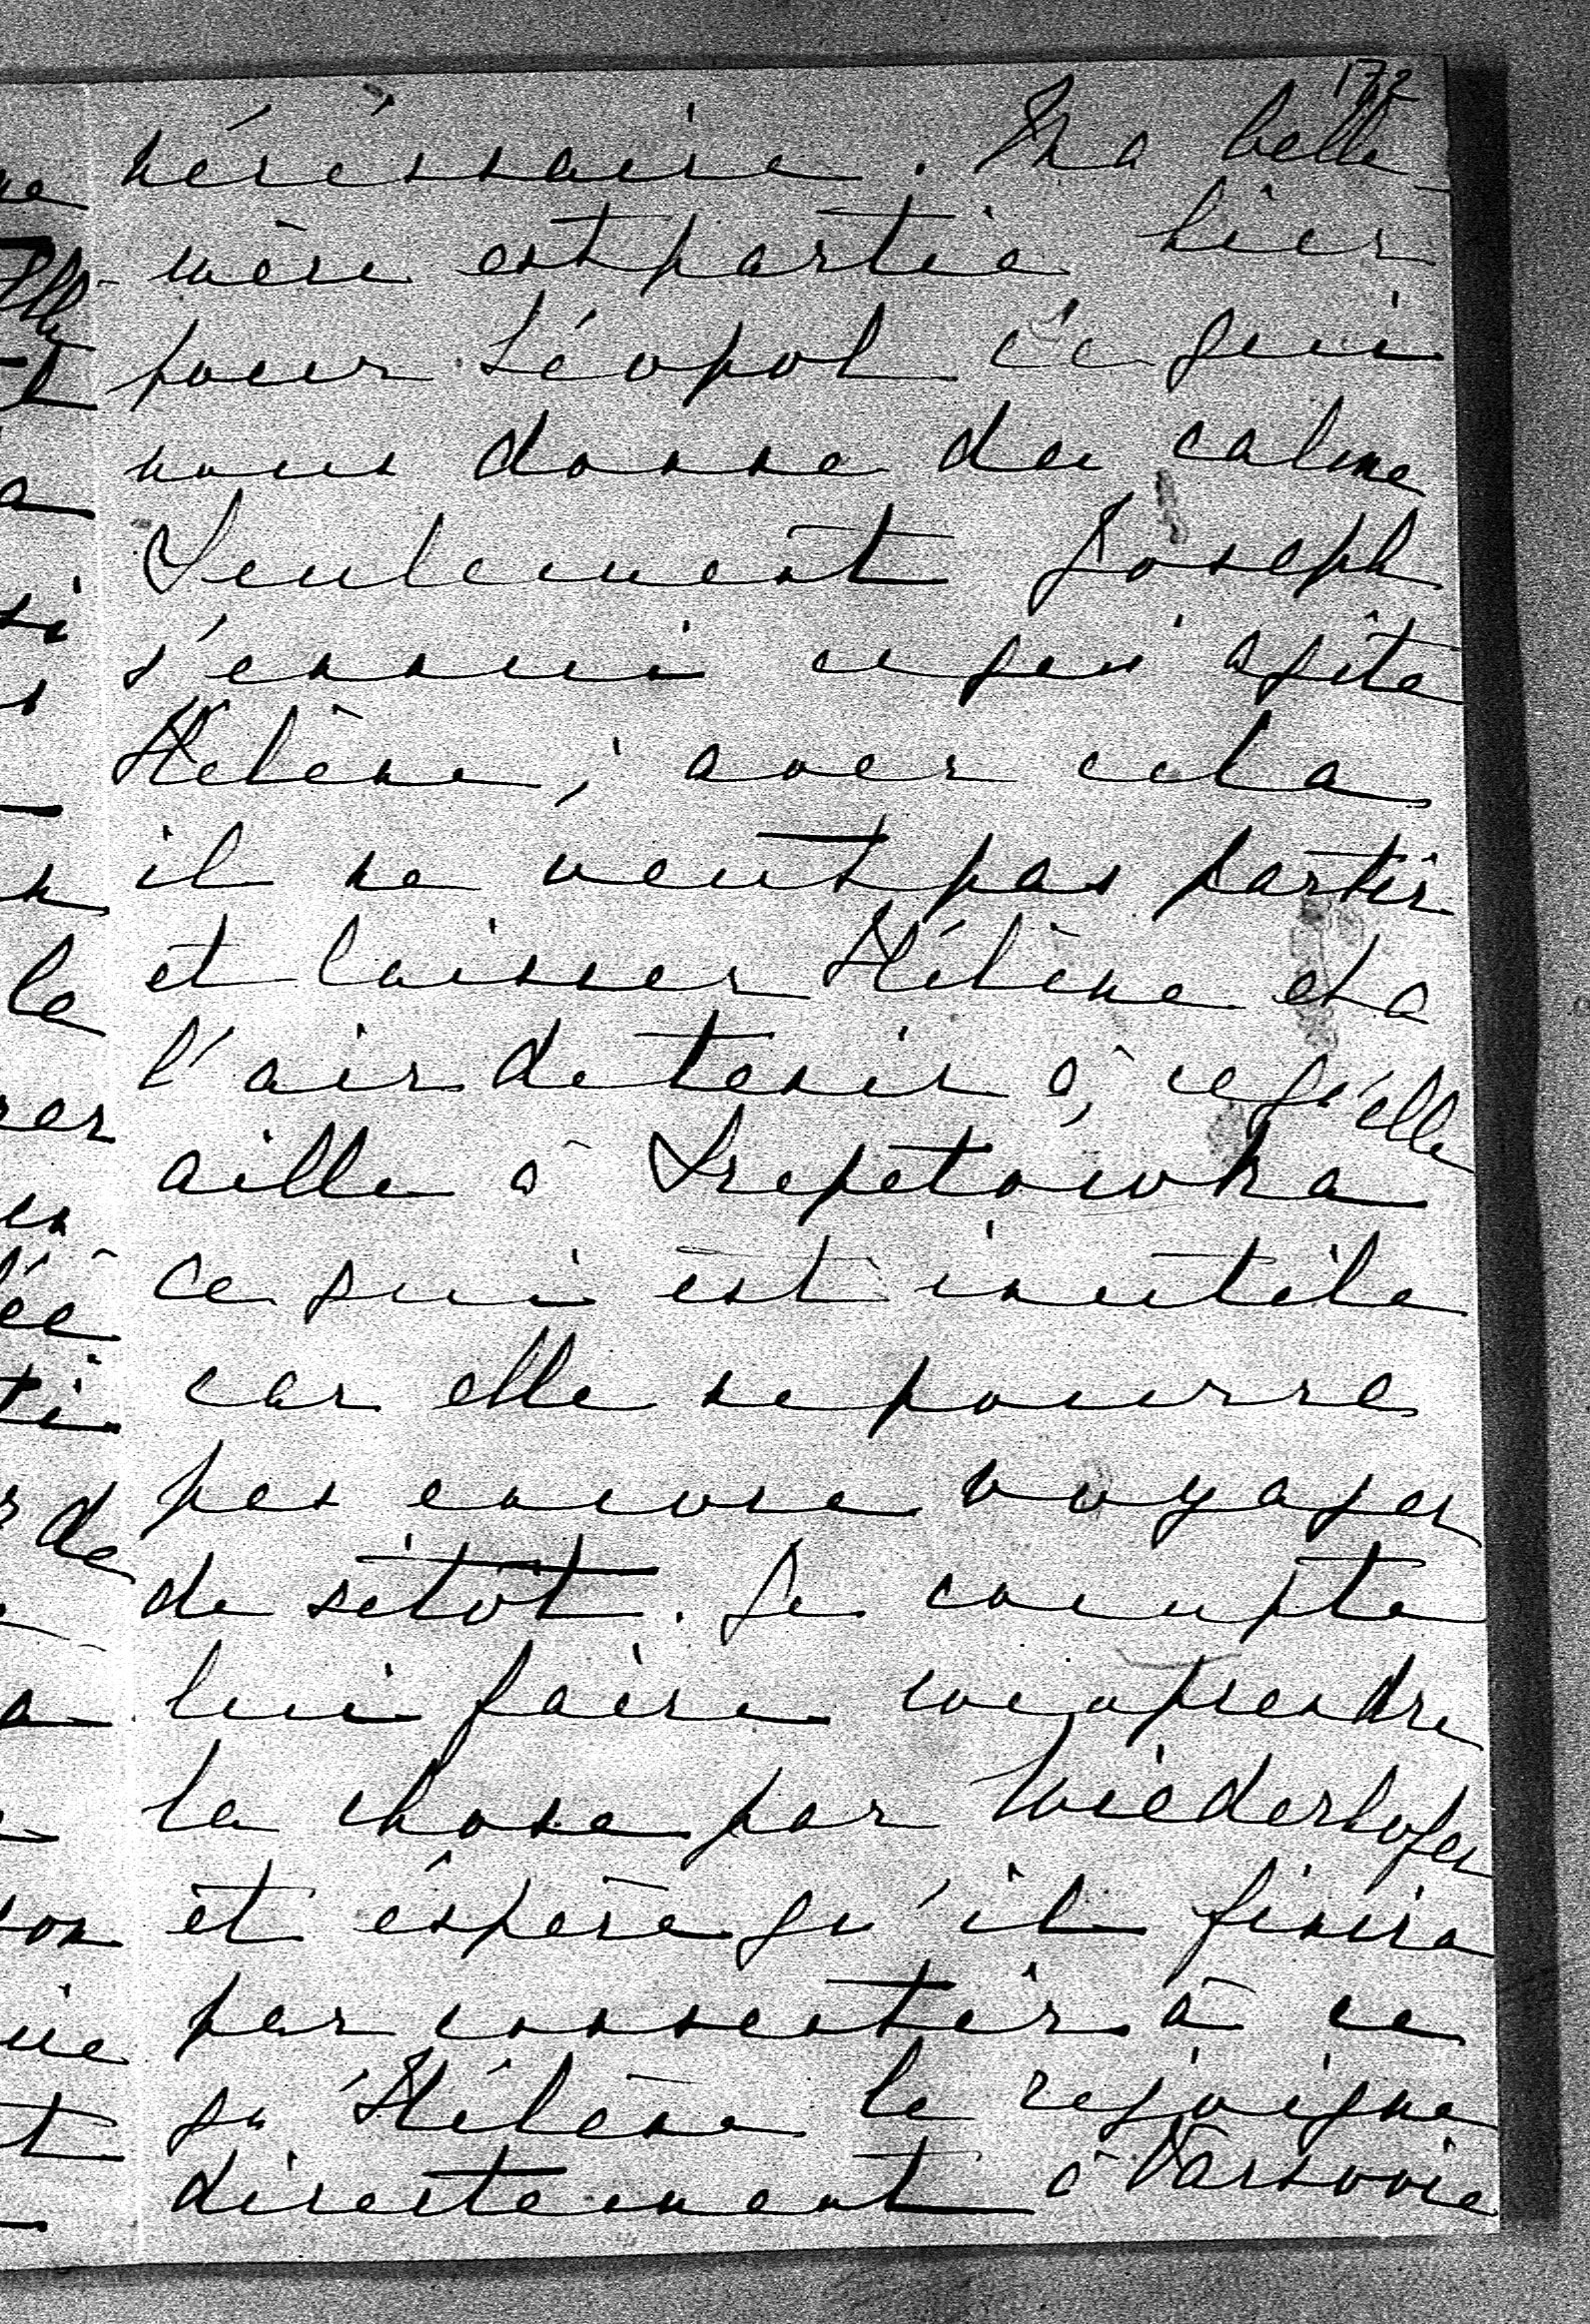 172
nécéssaire. Ma belle-
mère est partie hier
pour Léopol ce qui
nous donne du calme
Seulement Joseph
s'ennui ce qui agite
Hélène; avec cela
il ne veut pas partir
et laisser Hélène et a
l'air de tenir à, ce qu'elle
aille à Srepetowka
ce qui est inutile
car elle ne pourra
pas encore voyager
de sitôt. Je compte
lui faire comprendre
la chose par Wiederhofer
et éspère qu'il finira
par consentir à ce
qu'Hélène le rejoigne
directement à Varsovie